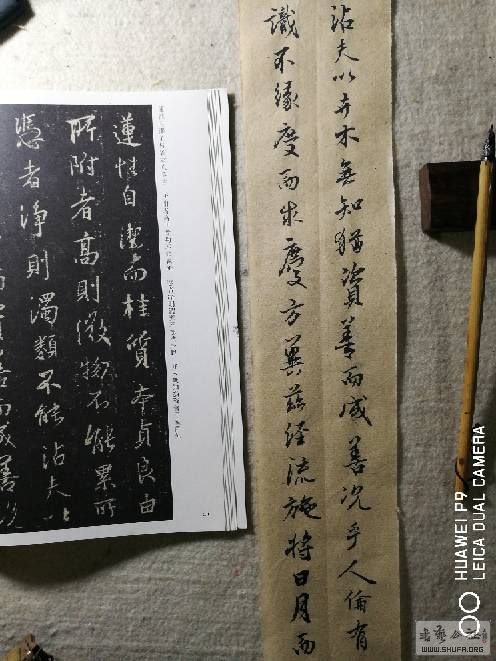 沾夫以卉木無知猶資善而成善況乎人倫有
識不緣慶而求慶方冀茲經流施將日月而
蓮性自潔而桂質本貞良由
所附者高則微物不能累所
憑者淨則濁類不能沾夫以
善而成善況
HUAWEI P9
LEICA DUAL CAMERA
书艺公社
WWW.SHUFA.ORG